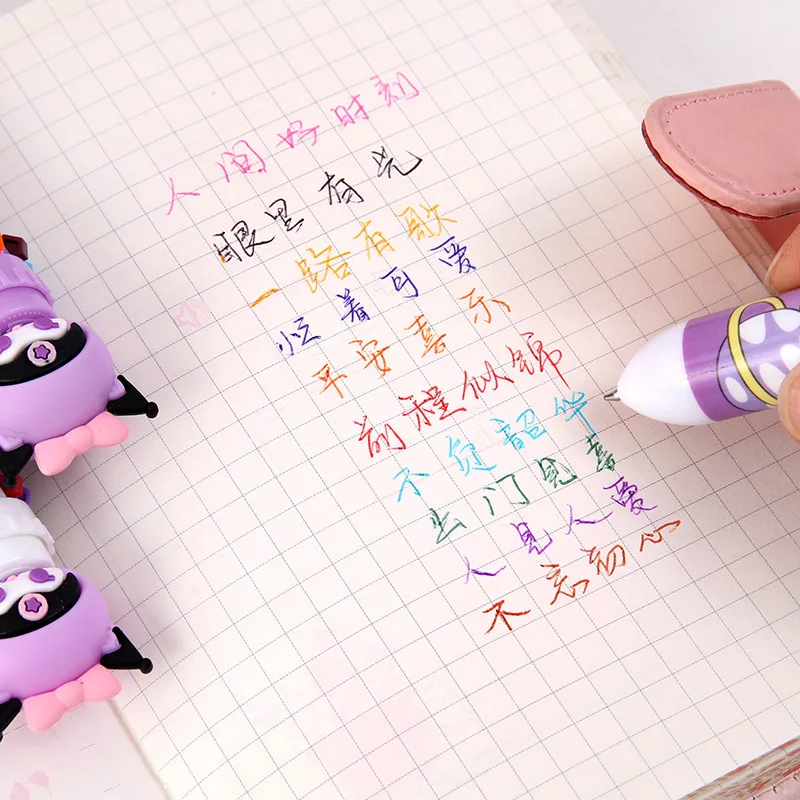 人间好时刻
眼里有光
一路有歌
恒着可爱
平安喜乐
前程似锦
不负韶华
出门见喜
人见人爱
不忘初心